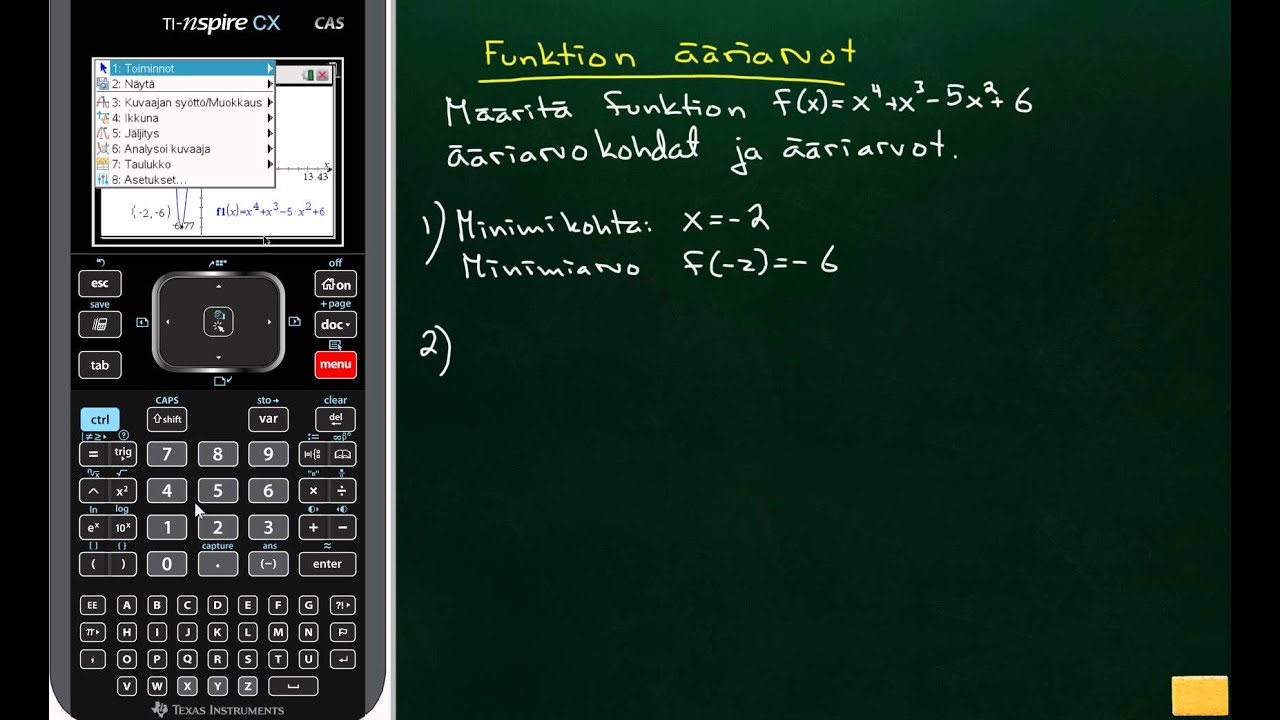 TI-nspire CX CAS
1: Toiminnot
2: Näytä
3: Kuvaajan syöttö/Muokkaus
4: Ikkuna
5: Jäljitys
6: Analysoi kuvaaja
7: Taulukko
8: Asetukset...
x
13.43
(-2,-6)
f1(x)=x⁴+x³-5·x²+6
-6.77
off
esc
on
save
+page
doc
tab
menu
CAPS
sto→
clear
ctrl
shift
var
del
|≠≥▸
?
:=
∞β°
=
trig
7
8
9
ⁿ√x
√
"▫"
^
x²
4
5
6
×
÷
ln
log
eˣ
10ˣ
1
2
3
+
−
[ ]
{ }
capture
ans
≈
(
)
0
.
(−)
enter
EE
A
B
C
D
E
F
G
?!▸
π▸
H
I
J
K
L
M
N
,
O
P
Q
R
S
T
U
V
W
X
Y
Z
TEXAS INSTRUMENTS
Funktion ääriarvot
Määritä funktion f(x)=x⁴+x³-5x²+6
ääriarvokohdat ja ääriarvot.
1) Minimikohta: x=-2
Minimiarvo f(-2)=-6
2)